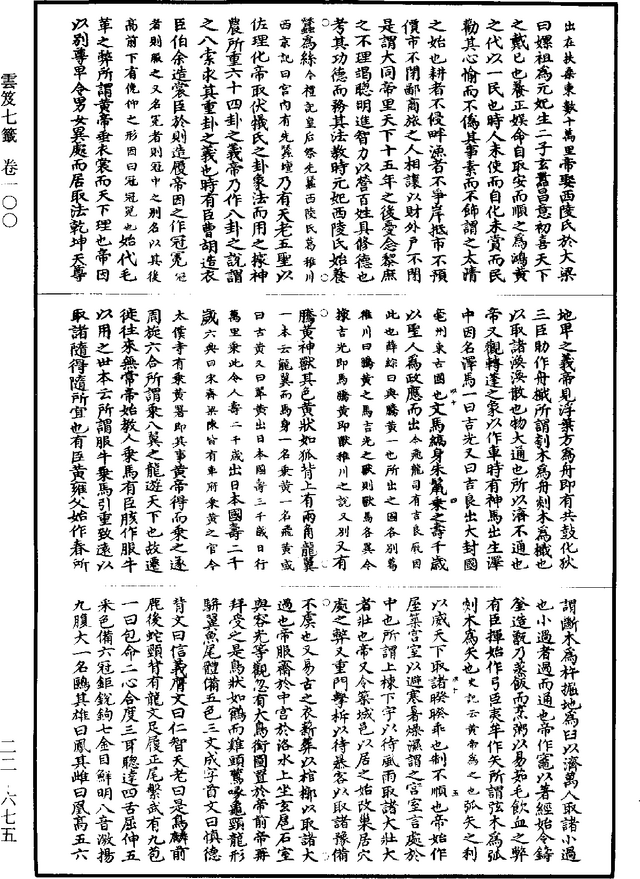 出在扶桑東數十萬里帝娶西陵氏於大梁
曰嫘祖為元妃生二子玄囂昌意初喜天下
之戴已也養正娛命自取安而順之為鴻黃
之代以一民也時人未使而自化未賞而民
勸其心愉而不偽其事素而不飾謂之太清
之始也耕者不侵畔漁者不爭岸抵市不預
價市不閉鄽商旅之人相讓以財外戶不閉
是謂大同帝里天下十五年之後憂念黎庶
之不理竭聰明進智力以營百姓具修德也
考其功德而務其法教時元妃西陵氏始養
蠶為絲今禮記皇后祭先蠶西陵氏葛稚川
西京記曰宮內有先蠶壇乃有天老五聖以
佐理化帝取伏犧氏之卦象法而用之據神
農所重六十四卦之義帝乃作八卦之說謂
之八索求其重卦之義也時有臣曹胡造衣
臣伯余造裳臣於則造履帝因之作冠冕冠
者則服之又名冕者則冠中之別名以其後
高前下有俛仰之形因曰冠冕也始代毛
革之弊所謂黃帝垂衣裳而天下理也帝因
以別尊卑令男女異處而居取法乾坤天尊
地卑之義帝見浮葉方為舟即有共鼓化狄
三臣助作舟檝所謂刳木為舟剡木為檝也
以取諸渙渙散也物大通也所以濟不通也
帝又觀轉蓬之象以作車時有神馬出生澤
中因名澤馬一曰吉光又曰吉良出大封國
亳州東古國也文馬縞身朱鬣乘之壽千歲
以聖人為政應而出今飛龍司有吉良厩因
此也薛綜曰與騰黃一也所出之國各別葛
稚川曰騰黃之馬吉光之獸則獸馬各異今
據吉光即馬騰黃即獸稚川之說又別又有
騰黃神獸其色黃狀如狐背上有兩角龍翼
一本云龍翼而馬身一名乘黃一名飛黃或
曰古黃又曰翠黃出日本國壽三千歲日行
萬里乘此令人壽二千歲出日本國壽二千
歲六典曰宋齊梁陳皆有車府乘黃之官今
太僕寺有乘黃署即其事黃帝得而乘之遂
周旋六合所謂乘八翼之龍遊天下也故遷
徙往來無常帝始教人乘馬有臣胲作服牛
以用之世本云所謂服牛乘馬引重致遠以
取諸隨得隨所宜也有臣黃雍父始作舂所
謂斷木為杵掘地為臼以濟萬人取諸小過
也小過者過而通也帝作竈以著經始令鑄
釜造甑乃蒸飯而烹粥以易茹毛飲血之弊
有臣揮始作弓臣夷牟作矢所謂弦木為弧
剡木為矢也史記云黃帝為之也弧矢之利
以威天下取諸暌暌乖也制不順也帝始作
屋築宮室以避寒暑燥濕謂之宮室言處於
中也所謂上棟下宇以待風雨取諸大壯大
者壯也帝又令築城邑以居之始改巢居穴
處之弊又重門擊柝以待暴客以取諸豫備
不虞也又易古之衣薪葬以棺槨以取諸大
過也帝服齋於中宮於洛水上坐玄扈石室
與容光等觀忽有大鳥銜圖置於帝前帝再
拜受之是鳥狀如鶴而雞頭鷰喙龜頸龍形
駢翼魚尾體備五色三文成字首文曰慎德
背文曰信義膺文曰仁智天老曰是鳥麟前
鹿後蛇頸背有龍文足履正尾繫武有九苞
一曰包命二心合度三耳聰達四舌屈伸五
采色備六冠鉅銳鉤七金目鮮明八音激揚
九腹大一名鶠其雄曰鳳其雌曰凰高五六
雲笈七籤 卷一〇〇
二二·六七五